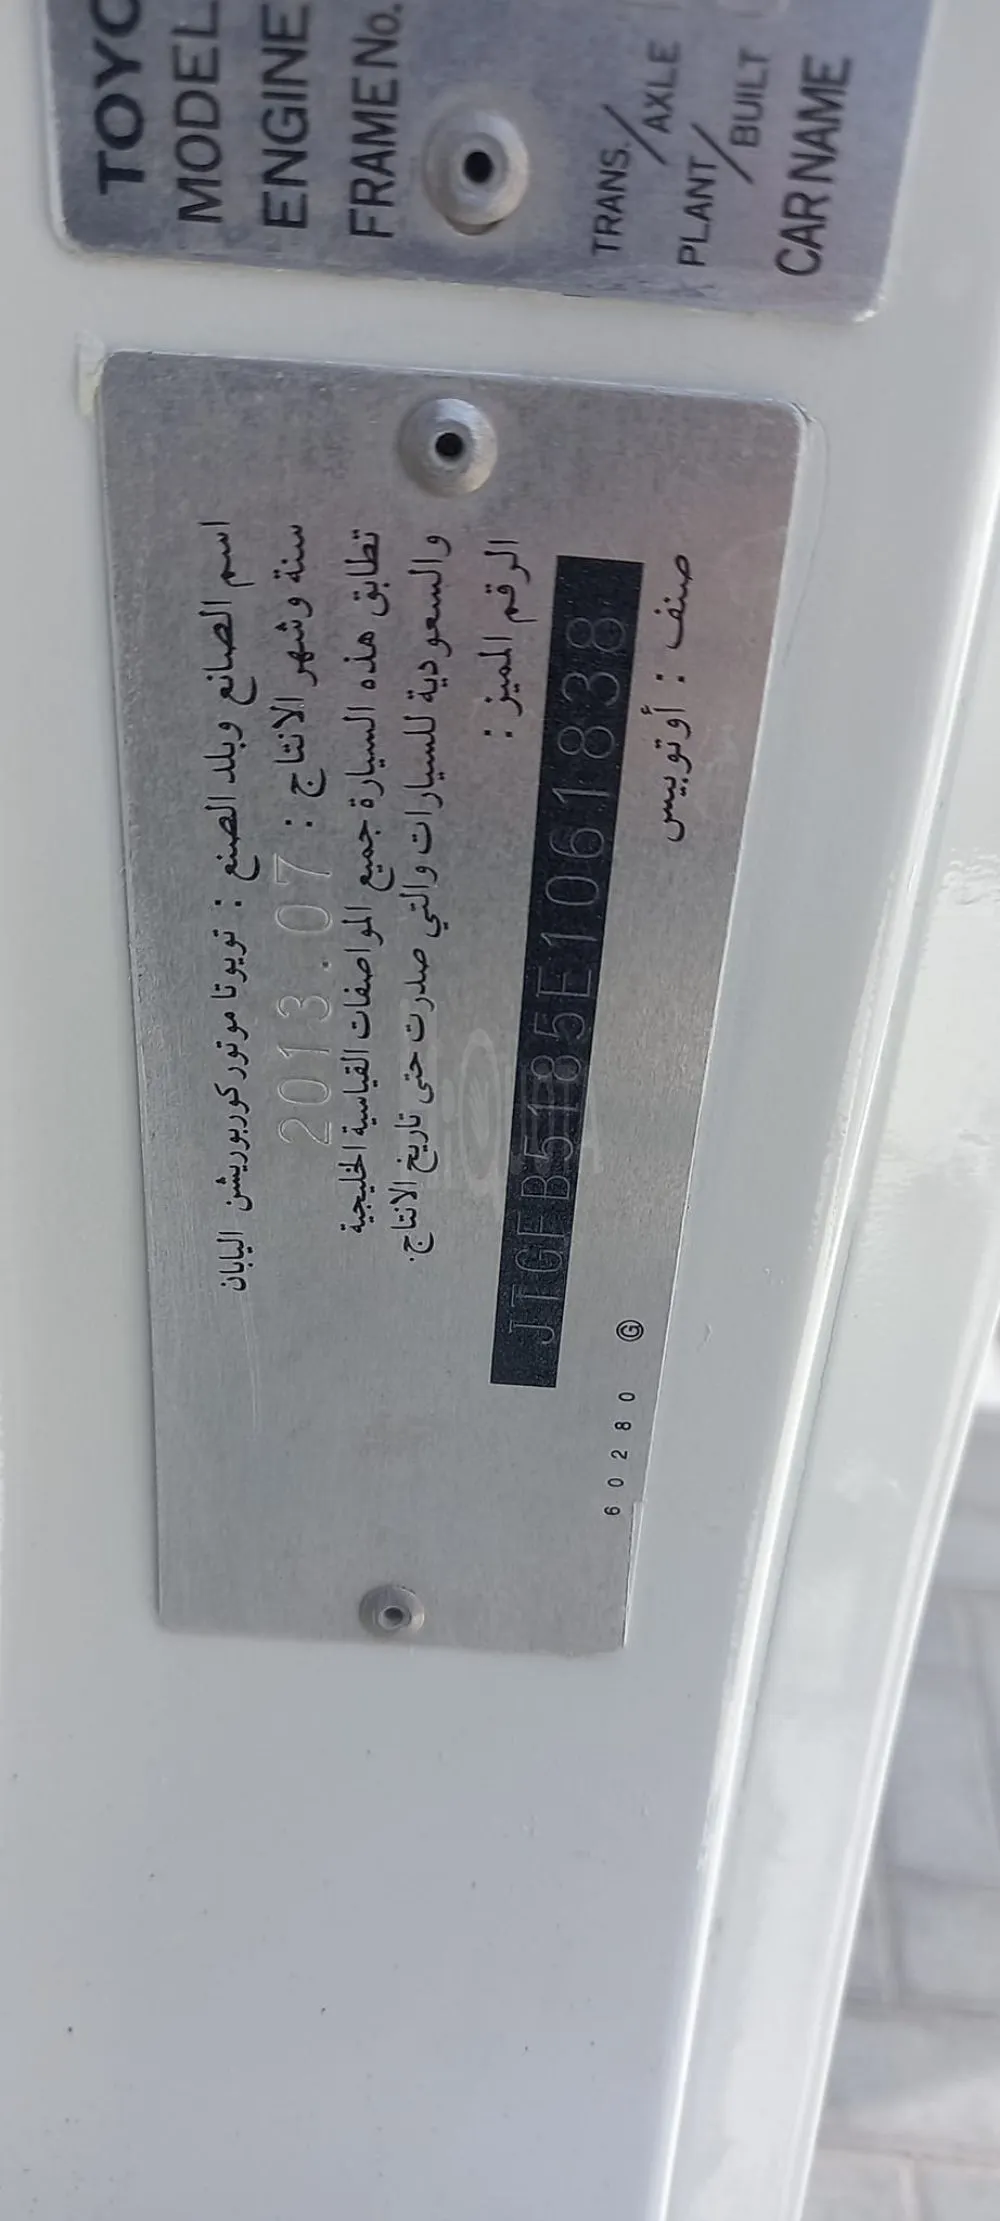 TOYO
MODEL
ENGINE
FRAME No.
TRANS./AXLE
PLANT/BUILT
CAR NAME
اسم الصانع وبلد الصنع : تويوتا موتور كوربوريشن اليابان
سنة وشهر الانتاج : 2013.07
تطابق هذه السيارة جميع المواصفات القياسية الخليجية
والسعودية للسيارات والتي صدرت حتى تاريخ الانتاج.
الرقم المميز :
JTGFB5185E1061838
صنف : أوتوبيس
60280 Ⓖ